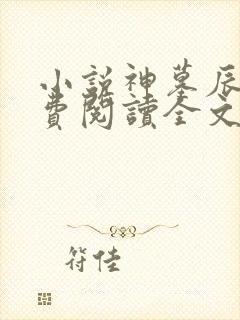 小説神墓辰
費閱讀全文
符佳